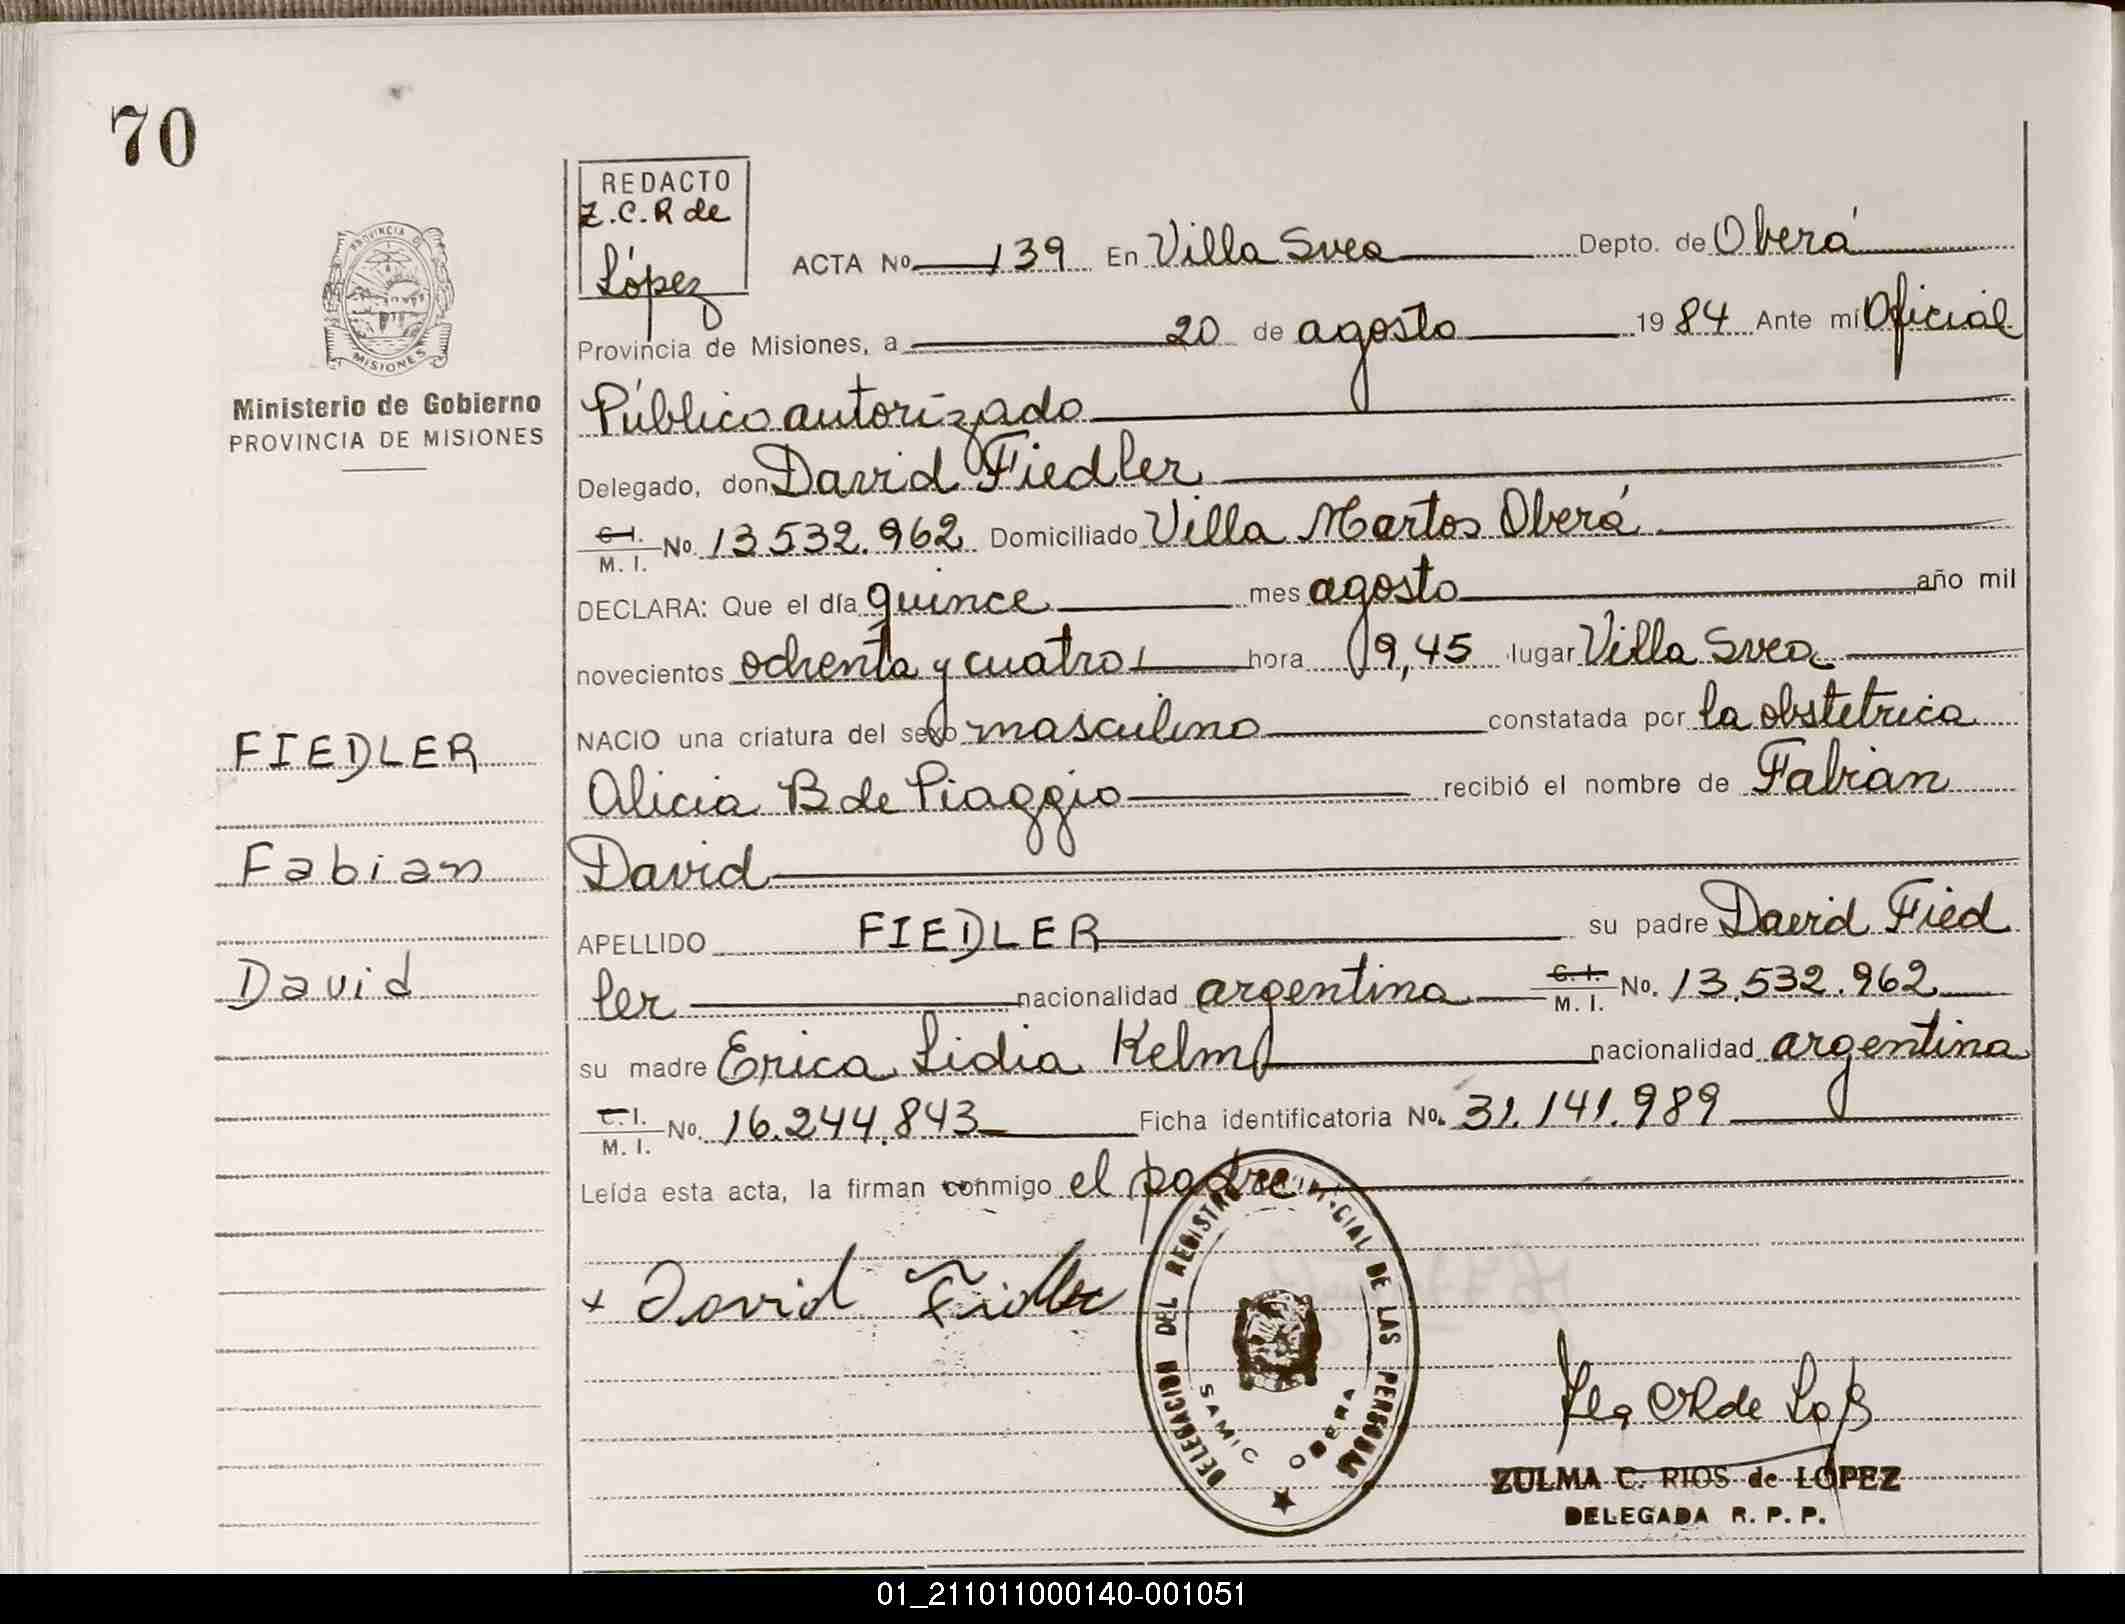 70
PROVINCIA DE
MISIONES
Ministerio de Gobierno
PROVINCIA DE MISIONES
FIEDLER
Fabian
David
REDACTO
Z.C.R de
López
ACTA No 139 En Villa Svea Depto. de Oberá
Provincia de Misiones, a 20 de agosto 1984 Ante mí Oficial
Público autorizado
Delegado, don David Fiedler
C.I. M.I. No. 13.532.962 Domiciliado Villa Martos Oberá
DECLARA: Que el día quince mes agosto año mil
novecientos ochenta y cuatro hora 9,45 lugar Villa Svea
NACIO una criatura del sexo masculino constatada por la obstetrica
Alicia B de Piaggio recibió el nombre de Fabian
David
APELLIDO FIEDLER su padre David Fied
ler nacionalidad argentina C.I. M.I. No. 13.532.962
su madre Erica Lidia Kelm nacionalidad argentina
C.I. M.I. No. 16.244.843 Ficha identificatoria No. 31.141.989
Leída esta acta, la firman conmigo el padre
x David Fiedler
DELEGACION DEL REGISTRO PROVINCIAL DE LAS PERSONAS
SAMIC OBERA
ZULMA C. RIOS de LOPEZ
DELEGADA R. P. P.
01_211011000140-001051